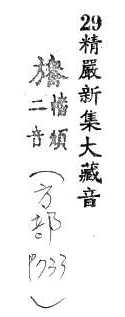 29精嚴新集大藏音
旝
檜
二音
（方部 P733）